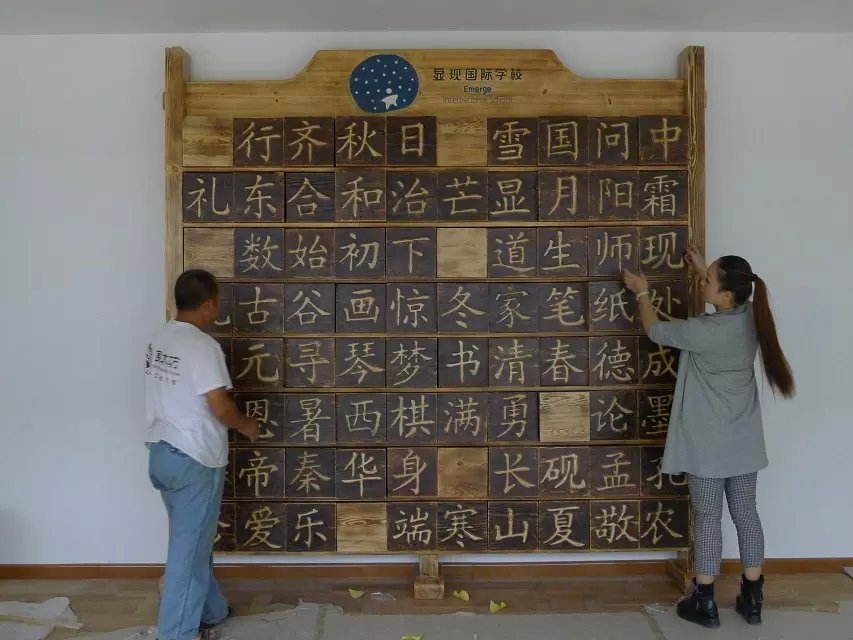 显现国际学校
Emerge
International School
行齐秋日 雪国问中
礼东合和治芒显月阳霜
数始初下 道生师现
古谷画惊冬家笔纸处
元寻琴梦书清春德成
恩暑西棋满勇 论墨
帝秦华身 长砚孟孔
爱乐 端寒山夏敬农